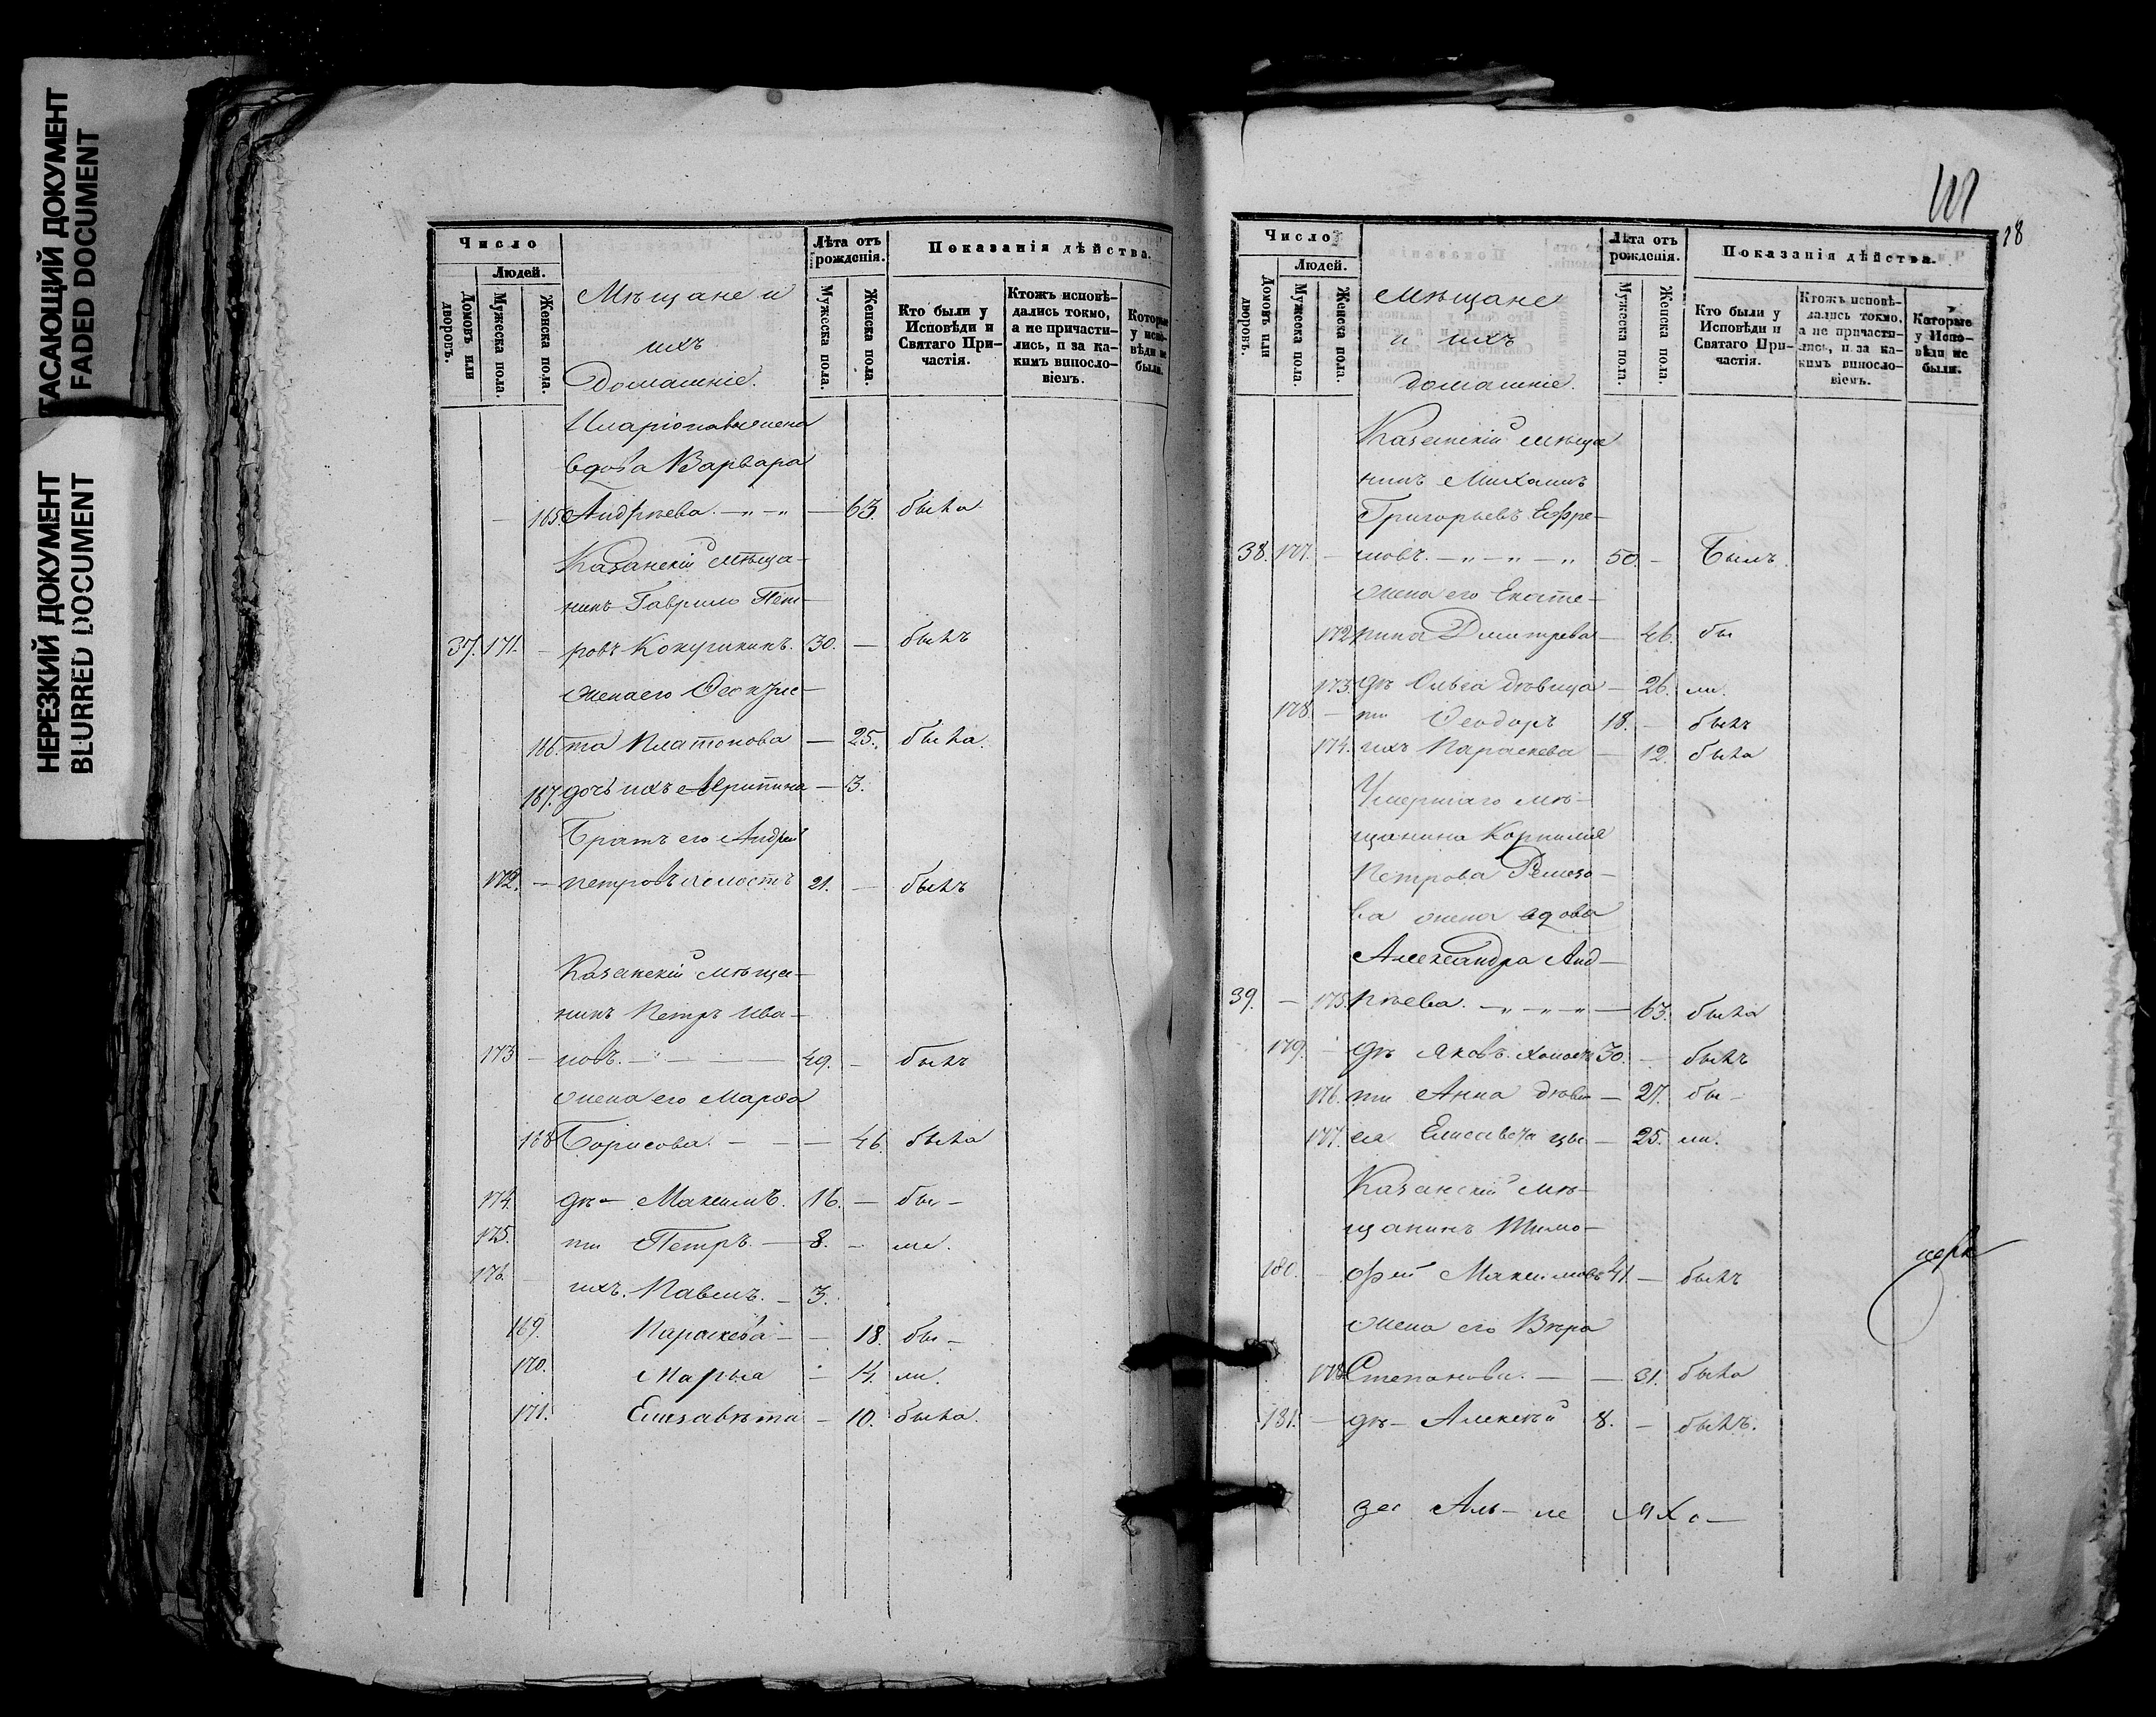 ТАСАЮЩИЙ ДОКУМЕНТ
FADED DOCUMENT
НЕРЕЗКИЙ ДОКУМЕНТ
BLURRED DOCUMENT
Число
Людей.
Домовъ или дворовъ.
Мужеска пола.
Женска пола.
Мѣщане и
ихъ
Домашніе.
Лѣта отъ рожденія.
Мужеска пола.
Женска пола.
Показанія дѣйства.
Кто были у Исповѣди и Святаго Причастія.
Ктожъ исповѣдались токмо, а не причастились, и за какимъ винословіемъ.
Которые у испо-вѣди не были.
Иларіонова жена
вдова Варвара
— 165. Андрѣева. — „ — „ — 63. была
Казанскій мѣща-
нинъ Гаврило Пет-
37. 171. — ровъ Кокушкинъ. 30. — былъ
жена его Ѳеокти-
166. та Платонова — 25. была.
167. дочь ихъ Агрипина — 3.
Братъ его Андрей
172. — Петровъ холостъ 21. — былъ
Казанскій мѣща-
нинъ Петръ Ива-
173 — новъ. — 49. — былъ
жена его Марѳа
168 Борисова. — — — 46. была
174. дѣ- Максимъ. 16. — бы-
175. ти Петръ. — 8. — ли.
176. ихъ. Павелъ. — 3.
169. Параскева — — 18. бы-
170. Марья — 14. ли.
171. Елизавѣта — 10. была.
111
18
Число
Людей.
Домовъ или дворовъ.
Мужеска пола.
Женска пола.
Мѣщане
и ихъ
домашніе.
Лѣта отъ рожденія.
Мужеска пола.
Женска пола.
Показанія дѣйства.
Кто были у Исповѣди и Святаго Причастія.
Ктожъ исповѣдались токмо, а не причастились, и за какимъ винословіемъ.
Которые у Испо-вѣди не были.
Казанскій мѣща
нинъ Михаилъ
Григорьевъ Ефре-
38. 177. — мовъ. — „ — „ — „ 50. — Былъ
жена его Екате-
172 рина Дмитрева — 46. бы
173. дѣ Ольга дѣвица — 26. ли.
178. — ти Ѳеодоръ 18. — былъ
174. ихъ Параскева — 12. была
Умершаго мѣ-
щанина Корнилія
Петрова Ремезо-
ва жена вдова
Александра Анд-
39. — 175. рѣева. — „ — „ — „ — 63. была
179. — дѣ Яковъ. холостъ 30. — былъ
176. ти Анна дѣви — 27. бы-
177. ея Елисавета цы — 25. ли.
Казанскій мѣ-
щанинъ Тимо-
180. — ѳей Максимовъ 41. — былъ
жена его Вѣра
178. Степанова. — — 31. была
181. — дѣ- Алексѣй 8. — былъ.